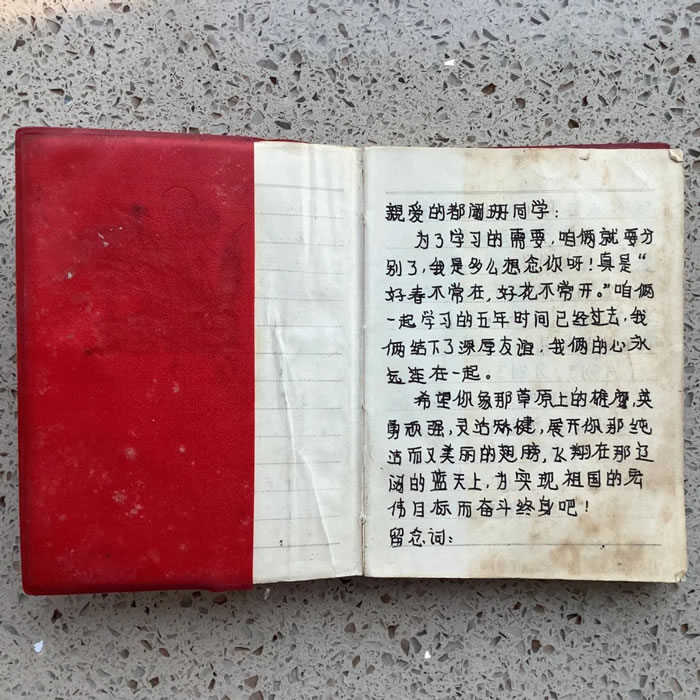 親爱的都阁珊同学：
为了学习的需要，咱俩就要分
别了，我是多么想念你呀！真是“
好春不常在，好花不常开。”咱俩
一起学习的五年时间已经过去，我
俩结下了深厚友谊，我俩的心永
远连在一起。
希望你象那草原上的雄鹰，英
勇顽强，灵活矫健，展开你那纯
洁而又美丽的翅膀，飞翔在那辽
阔的蓝天上，为实现祖国的宏
伟目标而奋斗终身吧！
留念词：